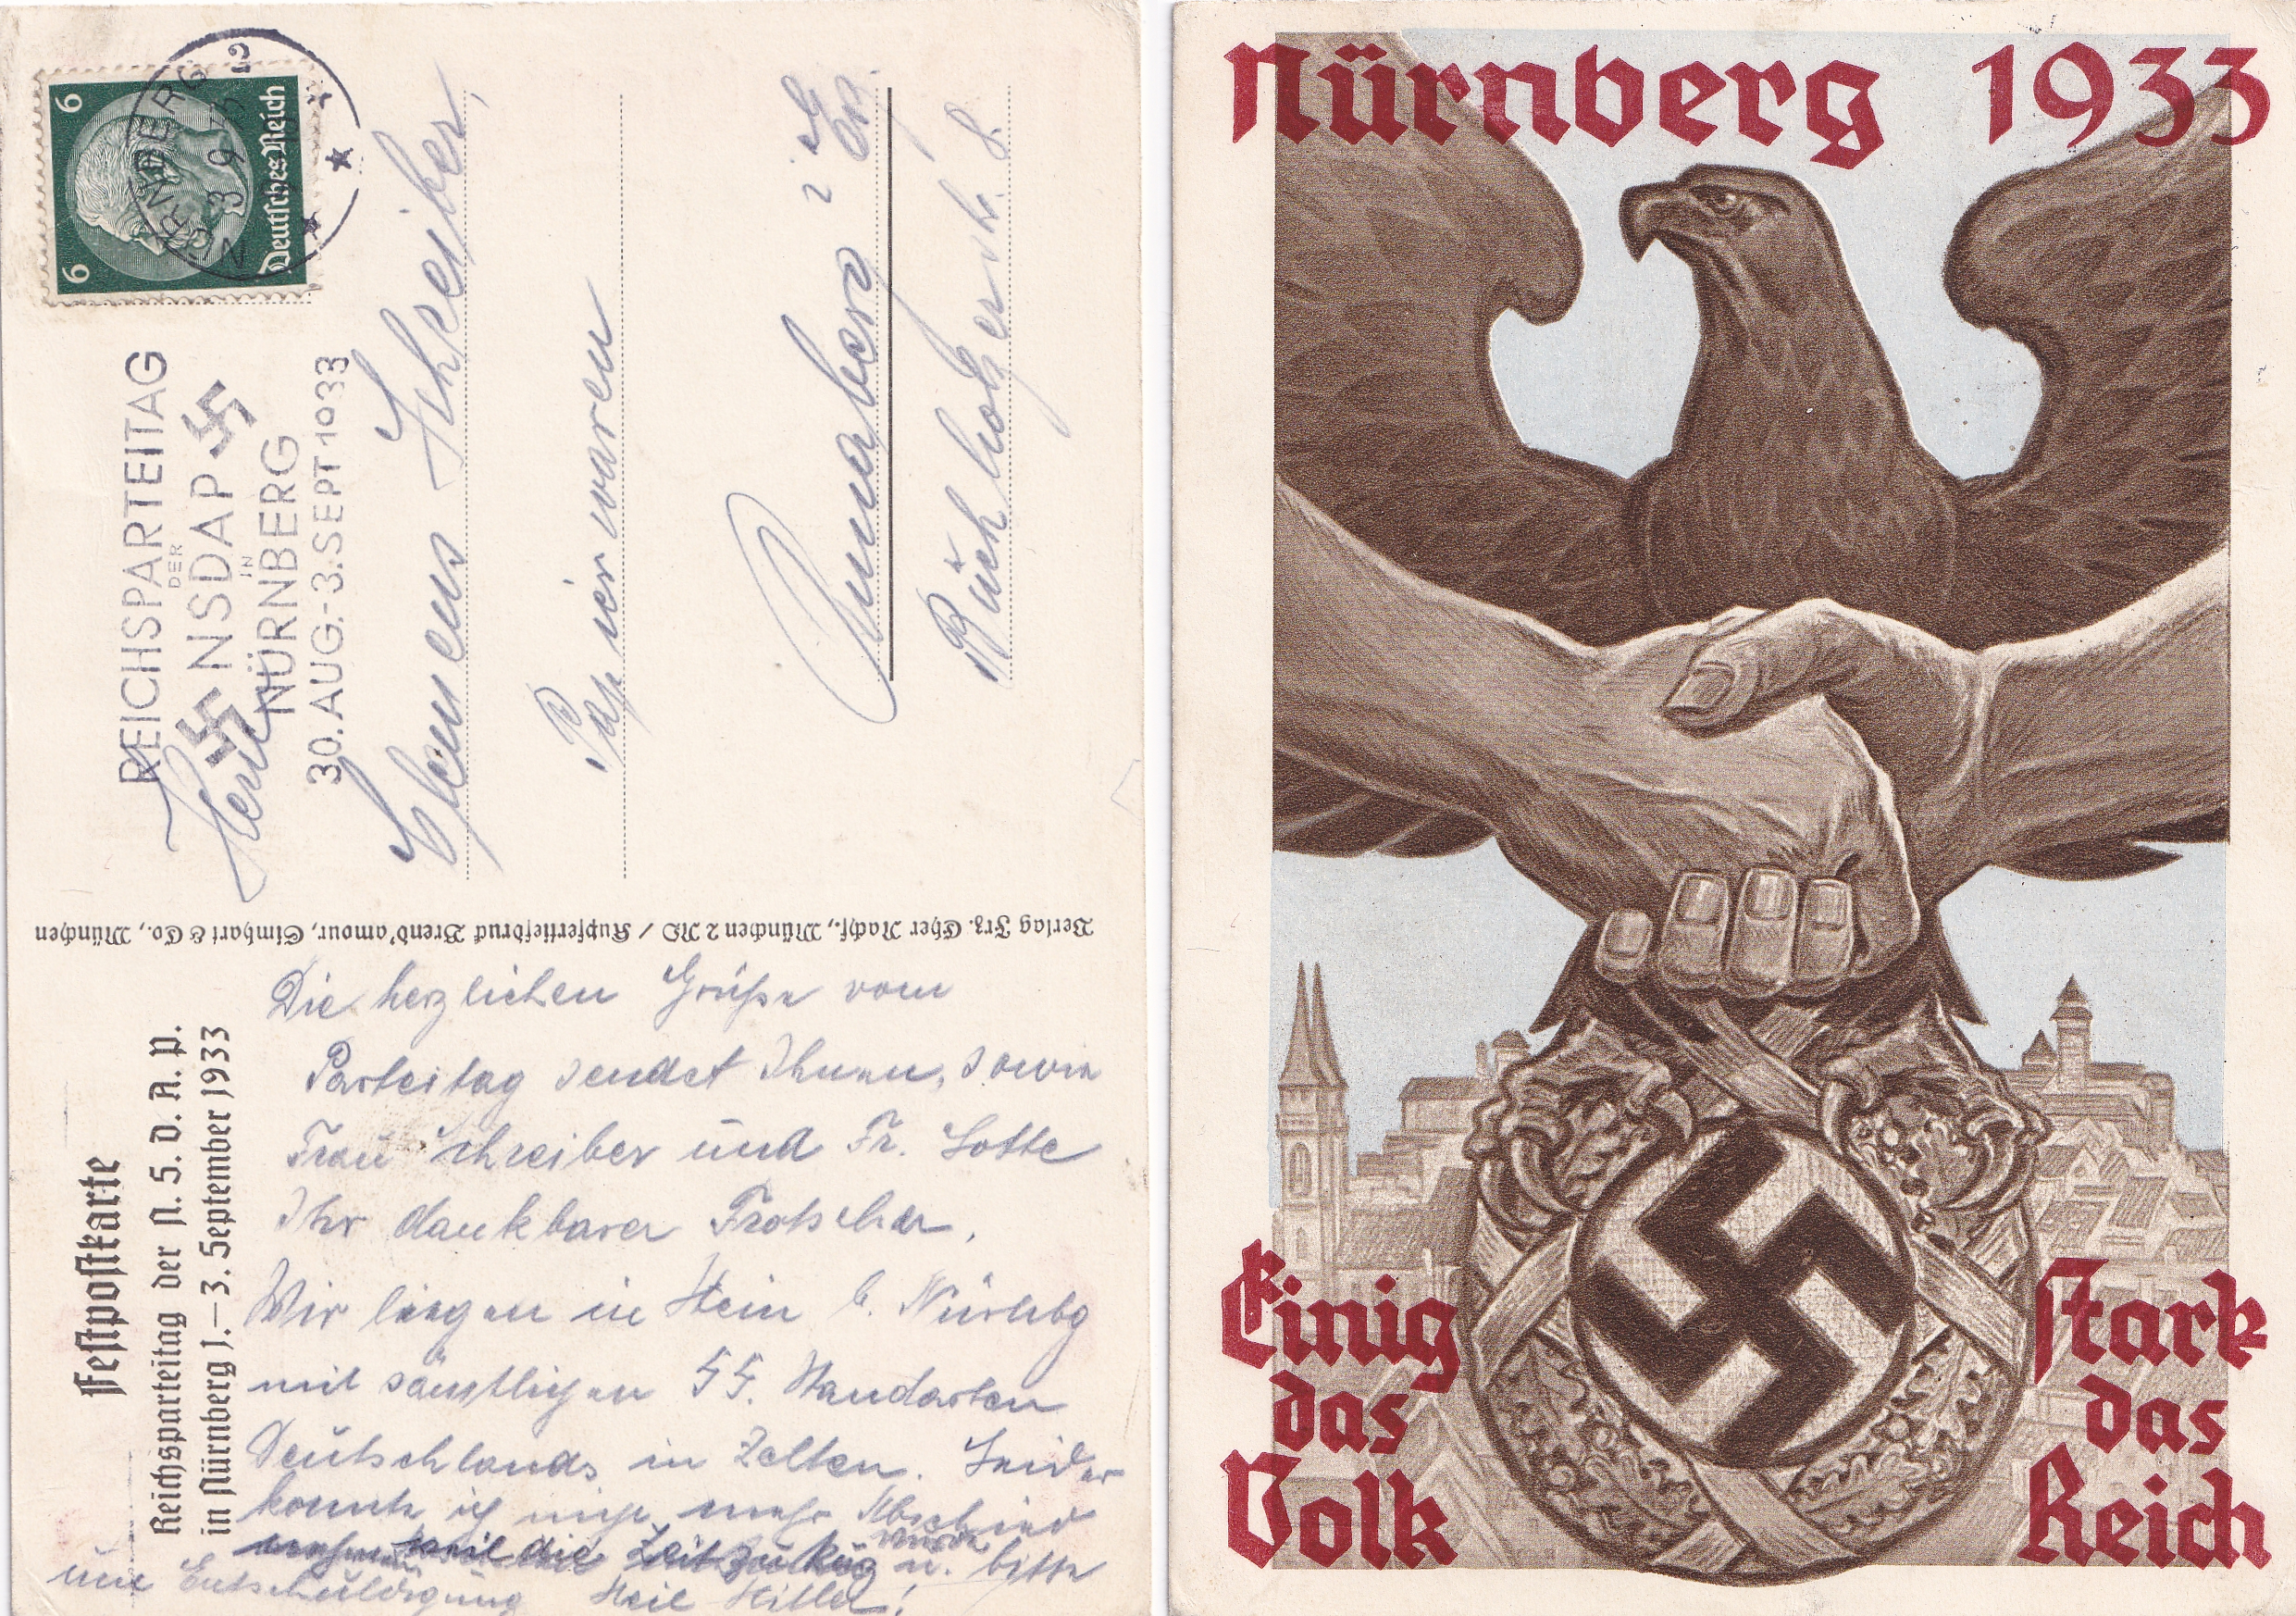 6
6
Deutsches Reich
NÜRNBERG 2
3 9 33
REICHSPARTEITAG
DER
NSDAP
IN
NÜRNBERG
30. AUG.-3. SEPT 1933
Herrn
Clemens Schreiber,
Papierwaren
Annaberg i Erz
Buchholzerstr. 8
Verlag Frz. Eher Nachf., München 2 NO / Kupfertiefdruck Brend'amour, Simhart & Co., München
Festpostkarte
Reichsparteitag der N. S. D. A. P.
in Nürnberg 1.–3. September 1933
Die herzlichen Grüße vom
Parteitag sendet Ihnen, sowie
Frau Schreiber und Fr. Lotte
Ihr dankbarer Frotscher.
Wir liegen in Stein b. Nürnbg
mit sämtlichen SS. Standarten
Deutschlands in Zelten. Leider
konnte ich nicht mehr Abschied
nehmen weil die Zeit zu kurz wurde u. bitte
um Entschuldigung Heil Hitler!
Nürnberg 1933
Einig
das
Volk
stark
das
Reich